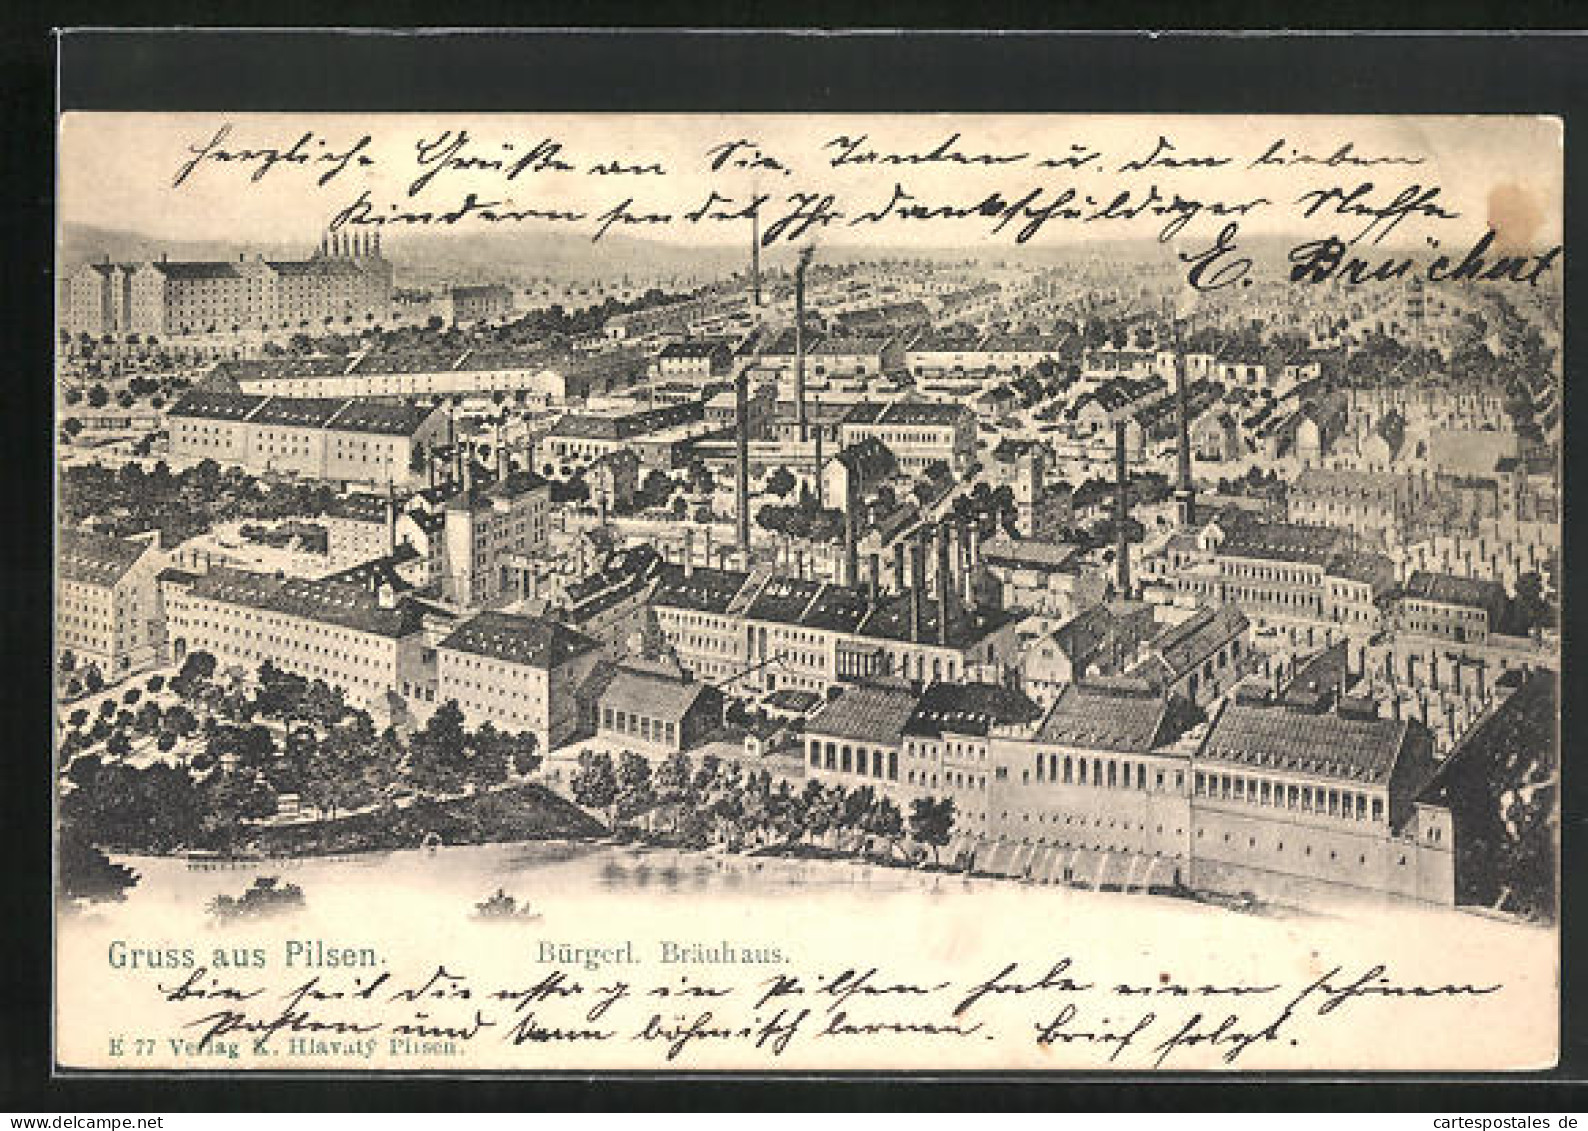 herzliche Grüße an Sie, Tanten u. den lieben
Kindern sendet Ihr dankschuldiger Neffe
E. Brüchert
Gruss aus Pilsen. Bürgerl. Bräuhaus.
bin seit dienstag in Pilsen habe einen schönen
Posten und kann böhmisch lernen. Brief folgt.
E 77 Verlag K. Hlavatý Pilsen.
www.delcampe.net
cartespostales de